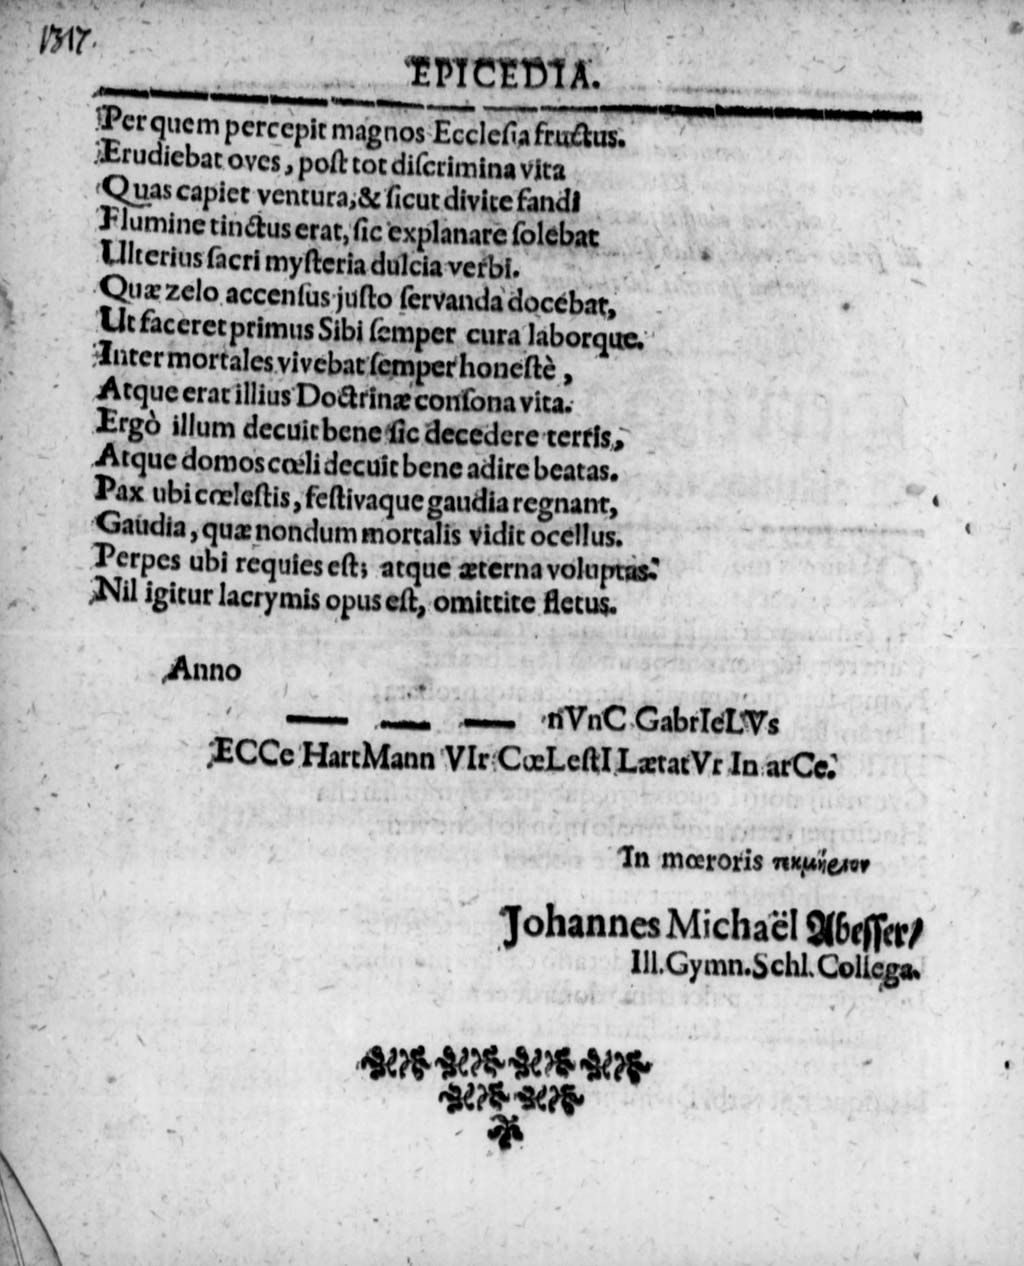 1317.
EPICEDIA.
Per quem percepit magnos Ecclesia fructus.
Erudiebat oves, post tot discrimina vita
Quas capiet ventura, & sicut divite fandi
Flumine tinctus erat, sic explanare solebat
Ulterius sacri mysteria dulcia verbi.
Quæ zelo accensus justo servanda docebat,
Ut faceret primus Sibi semper cura laborque.
Inter mortales vivebat semper honestè,
Atque erat illius Doctrinæ consona vita.
Ergò illum decuit bene sic decedere terris,
Atque domos cœli decuit bene adire beatas.
Pax ubi cœlestis, festivaque gaudia regnant,
Gaudia, quæ nondum mortalis vidit ocellus.
Perpes ubi requies est; atque æterna voluptas.
Nil igitur lacrymis opus est, omittite fletus.
Anno
— — — nVnC GabrIeLVs
ECCe HartMann VIr CœLestI LætatVr In arCe.
In mœroris τεκμήριον
Johannes Michaël Abesser/
Ill. Gymn. Schl. Collega.